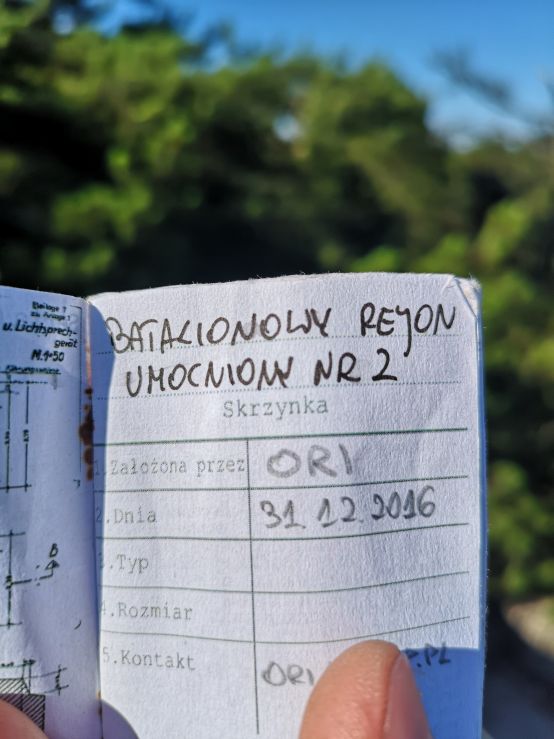 Beilage 7
zu Anlage 1
u. Lichtsprech-
gerät
M.1:50
BATALIONOWY REJON
UMOCNIONY NR 2
Skrzynka
1.Założona przez ORI
2.Dnia 31.12.2016
3.Typ
4.Rozmiar
5.Kontakt ORI .PL
B